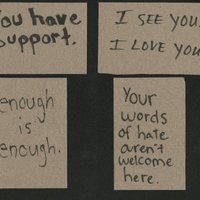 You have
support.
I SEE YOU.
I LOVE YOU
enough
is
enough.
Your
words
of hate
aren't
welcome
here.